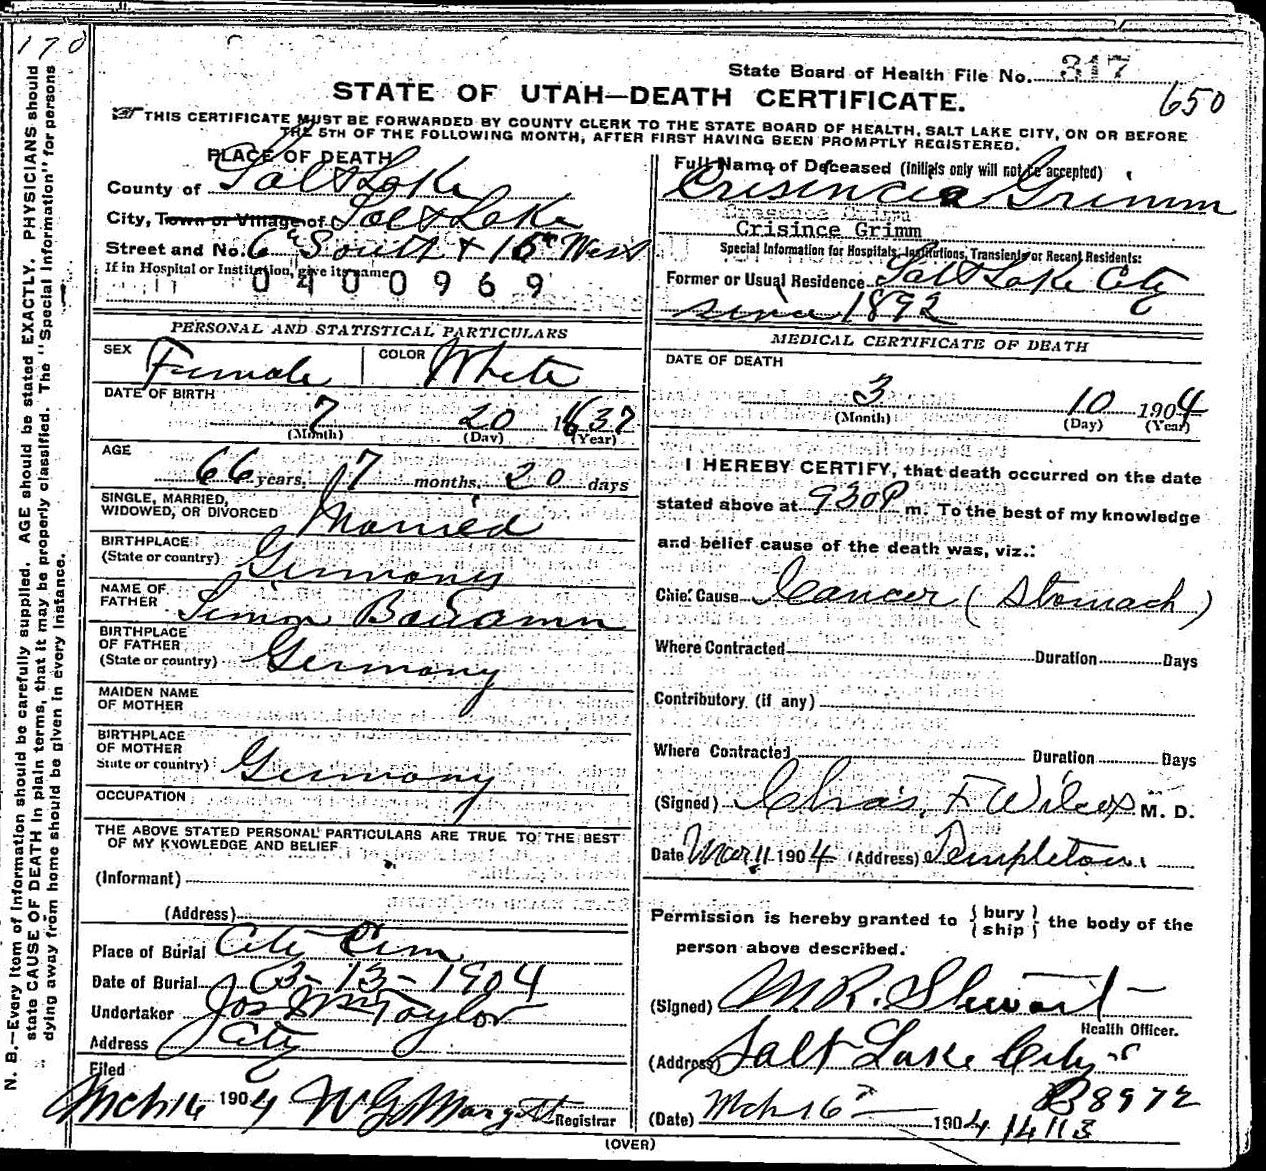 170
State Board of Health File No. 317
650
STATE OF UTAH—DEATH CERTIFICATE.
THIS CERTIFICATE MUST BE FORWARDED BY COUNTY CLERK TO THE STATE BOARD OF HEALTH, SALT LAKE CITY, ON OR BEFORE
THE 5TH OF THE FOLLOWING MONTH, AFTER FIRST HAVING BEEN PROMPTLY REGISTERED.
N. B.—Every item of information should be carefully supplied. AGE should be stated EXACTLY. PHYSICIANS should
state CAUSE OF DEATH in plain terms, that it may be properly classified. The "Special Information" for persons
dying away from home should be given in every instance.
PLACE OF DEATH
County of Salt Lake
City, Town or Village of Salt Lake
Street and No. 6th South + 15th West
If in Hospital or Institution, give its name
0400969
PERSONAL AND STATISTICAL PARTICULARS
SEX Female COLOR White
DATE OF BIRTH
7 20 1837
(Month) (Day) (Year)
AGE
66 years, 7 months, 20 days
SINGLE, MARRIED,
WIDOWED, OR DIVORCED Married
BIRTHPLACE
(State or country) Germany
NAME OF
FATHER Simon
BIRTHPLACE
OF FATHER
(State or country) Germany
MAIDEN NAME
OF MOTHER
BIRTHPLACE
OF MOTHER
State or country) Germany
OCCUPATION
THE ABOVE STATED PERSONAL PARTICULARS ARE TRUE TO THE BEST
OF MY KNOWLEDGE AND BELIEF
(Informant)
(Address)
Place of Burial City Cem
Date of Burial 3-13-1904
Undertaker Jos Wm Taylor
Address City
Filed
Mch 16 1904 Registrar
Full Name of Deceased (initials only will not be accepted)
Crisincia Grimm
Crisince Grimm
Special Information for Hospitals, Institutions, Transients or Recent Residents:
Former or Usual Residence Salt Lake City
since 1892
MEDICAL CERTIFICATE OF DEATH
DATE OF DEATH
3 10 1904
(Month) (Day) (Year)
I HEREBY CERTIFY, that death occurred on the date
stated above at 930P m. To the best of my knowledge
and belief cause of the death was, viz.:
Chief Cause Cancer (Stomach)
Where Contracted Duration Days
Contributory (if any)
Where Contracted Duration Days
(Signed) Chas. F Wilcox M. D.
Date Mar 11 1904 (Address) Templeton
Permission is hereby granted to { bury ship } the body of the
person above described.
(Signed) M. R. Stewart
Health Officer.
(Address) Salt Lake City
B8972
(Date) Mch 16 1904 14113
(OVER)